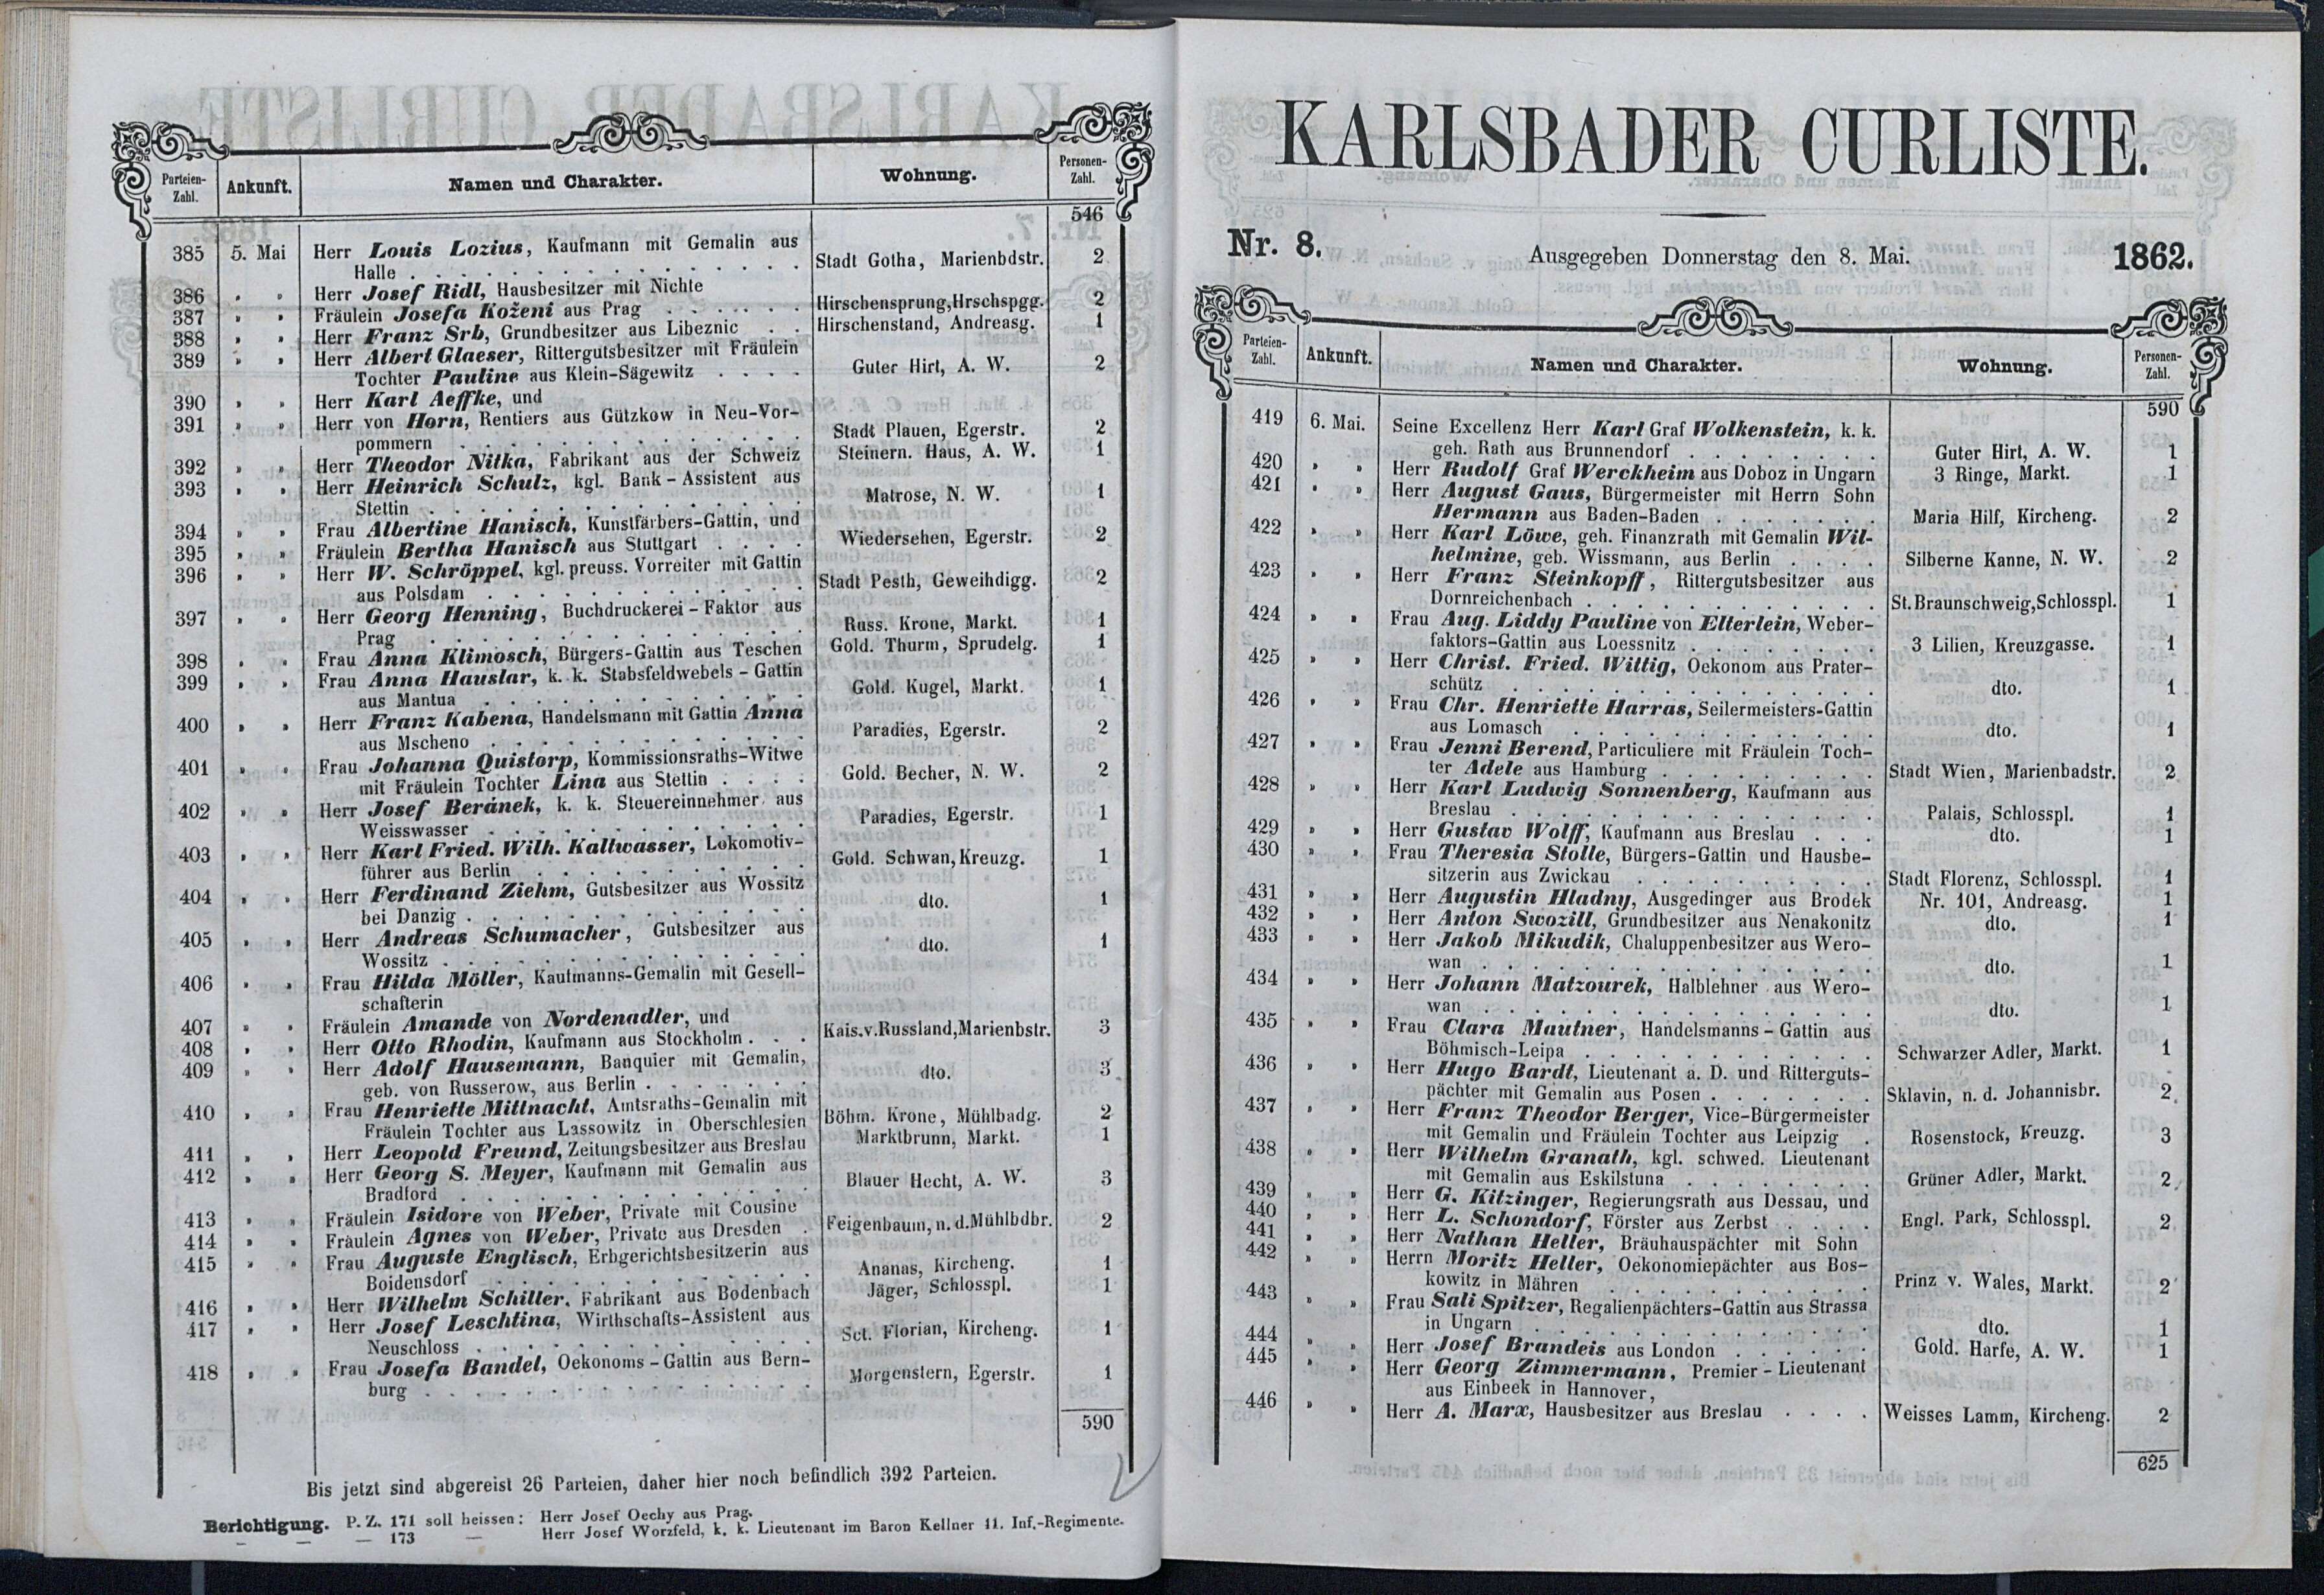 Parteien-Zahl. Ankunft. Namen und Charakter. Wohnung. Personen-Zahl.
546
385 5. Mai Herr Louis Lozius, Kaufmann mit Gemalin aus
Halle . . . Stadt Gotha, Marienbdstr. 2
386 " " Herr Josef Ridl, Hausbesitzer mit Nichte
387 " " Fräulein Josefa Kožení aus Prag . . . Hirschensprung, Hrschspgg. 2
388 " " Herr Franz Srb, Grundbesitzer aus Libeznic . . Hirschenstand, Andreasg. 1
389 " " Herr Albert Glaeser, Rittergutsbesitzer mit Fräulein
Tochter Pauline aus Klein-Sägewitz . . . . Guter Hirt, A. W. 2
390 " " Herr Karl Aeffke, und
391 " " Herr von Horn, Rentiers aus Gützkow in Neu-Vor-
pommern . . . Stadt Plauen, Egerstr. 2
392 " " Herr Theodor Nitka, Fabrikant aus der Schweiz Steinern. Haus, A. W. 1
393 " " Herr Heinrich Schulz, kgl. Bank-Assistent aus
Stettin . . . Matrose, N. W. 1
394 " " Frau Albertine Hanisch, Kunstfärbers-Gattin, und
395 " " Fräulein Bertha Hanisch aus Stuttgart . . . . Wiedersehen, Egerstr. 2
396 " " Herr W. Schröppel, kgl. preuss. Vorreiter mit Gattin
aus Potsdam . . . Stadt Pesth, Geweihdigg. 2
397 " " Herr Georg Henning, Buchdruckerei-Faktor aus
Prag . . . Russ. Krone, Markt. 1
398 " " Frau Anna Klimosch, Bürgers-Gattin aus Teschen Gold. Thurm, Sprudelg. 1
399 " " Frau Anna Hauslar, k. k. Stabsfeldwebels-Gattin
aus Mantua . . . Gold. Kugel, Markt. 1
400 " " Herr Franz Kabena, Handelsmann mit Gattin Anna
aus Mscheno . . . Paradies, Egerstr. 2
401 " " Frau Johanna Quistorp, Kommissionsraths-Witwe
mit Fräulein Tochter Lina aus Stettin . . . . Gold. Becher, N. W. 2
402 " " Herr Josef Beránek, k. k. Steuereinnehmer aus
Weisswasser . . . Paradies, Egerstr. 1
403 " " Herr Karl Fried. Wilh. Kallwasser, Lokomotiv-
führer aus Berlin . . . Gold. Schwan, Kreuzg. 1
404 " " Herr Ferdinand Ziehm, Gutsbesitzer aus Wossitz
bei Danzig . . . dto. 1
405 " " Herr Andreas Schumacher, Gutsbesitzer aus
Wossitz . . . dto. 1
406 " " Frau Hilda Möller, Kaufmanns-Gemalin mit Gesell-
schafterin
407 " " Fräulein Amande von Nordenadler, und
408 " " Herr Otto Rhodin, Kaufmann aus Stockholm . . . Kais.v.Russland, Marienbstr. 3
409 " " Herr Adolf Hausemann, Banquier mit Gemalin,
geb. von Russerow, aus Berlin . . . dto. 3
410 " " Frau Henriette Mittnacht, Amtsraths-Gemalin mit
Fräulein Tochter aus Lassowitz in Oberschlesien Böhm. Krone, Mühlbadg. 2
411 " " Herr Leopold Freund, Zeitungsbesitzer aus Breslau Marktbrunn, Markt. 1
412 " " Herr Georg S. Meyer, Kaufmann mit Gemalin aus
Bradford . . . Blauer Hecht, A. W. 3
413 " " Fräulein Isidore von Weber, Private mit Cousine
414 " " Fräulein Agnes von Weber, Private aus Dresden . Feigenbaum, n. d. Mühlbdbr. 2
415 " " Frau Auguste Englisch, Erbgerichtsbesitzerin aus
Boidensdorf . . . Ananas, Kircheng. 1
416 " " Herr Wilhelm Schiller, Fabrikant aus Bodenbach Jäger, Schlosspl. 1
417 " " Herr Josef Leschtina, Wirthschafts-Assistent aus
Neuschloss . . . Sct. Florian, Kircheng. 1
418 " " Frau Josefa Bandel, Oekonoms-Gattin aus Bern-
burg . . . Morgenstern, Egerstr. 1
590
Bis jetzt sind abgereist 26 Parteien, daher hier noch befindlich 392 Parteien.
Berichtigung. P. Z. 171 soll heissen: Herr Josef Oechy aus Prag.
— — — 173 — Herr Josef Worzfeld, k. k. Lieutenant im Baron Kellner 41. Inf.-Regimente.
KARLSBADER CURLISTE.
Nr. 8. Ausgegeben Donnerstag den 8. Mai. 1862.
Parteien-Zahl. Ankunft. Namen und Charakter. Wohnung. Personen-Zahl.
590
419 6. Mai. Seine Excellenz Herr Karl Graf Wolkenstein, k. k.
geh. Rath aus Brunnendorf . . . Guter Hirt, A. W. 1
420 " " Herr Rudolf Graf Werckheim aus Doboz in Ungarn 3 Ringe, Markt. 1
421 " " Herr August Gaus, Bürgermeister mit Herrn Sohn
Hermann aus Baden-Baden . . . Maria Hilf, Kircheng. 2
422 " " Herr Karl Löwe, geh. Finanzrath mit Gemalin Wil-
helmine, geb. Wissmann, aus Berlin . . . . Silberne Kanne, N. W. 2
423 " " Herr Franz Steinkopff, Rittergutsbesitzer aus
Dornreichenbach . . . St. Braunschweig, Schlosspl. 1
424 " " Frau Aug. Liddy Pauline von Elterlein, Weber-
faktors-Gattin aus Loessnitz . . . 3 Lilien, Kreuzgasse. 1
425 " " Herr Christ. Fried. Wittig, Oekonom aus Prater-
schütz . . . dto. 1
426 " " Frau Chr. Henriette Harras, Seilermeisters-Gattin
aus Lomasch . . . dto. 1
427 " " Frau Jenni Berend, Particuliere mit Fräulein Toch-
ter Adele aus Hamburg . . . Stadt Wien, Marienbadstr. 2
428 " " Herr Karl Ludwig Sonnenberg, Kaufmann aus
Breslau . . . Palais, Schlosspl. 1
429 " " Herr Gustav Wolff, Kaufmann aus Breslau . . . dto. 1
430 " " Frau Theresia Stolle, Bürgers-Gattin und Hausbe-
sitzerin aus Zwickau . . . Stadt Florenz, Schlosspl. 1
431 " " Herr Augustin Hladny, Ausgedinger aus Brodek Nr. 101, Andreasg. 1
432 " " Herr Anton Swozill, Grundbesitzer aus Nenakonitz dto. 1
433 " " Herr Jakob Mikudik, Chaluppenbesitzer aus Wero-
wan . . . dto. 1
434 " " Herr Johann Matzourek, Halblehner aus Wero-
wan . . . dto. 1
435 " " Frau Clara Mautner, Handelsmanns-Gattin aus
Böhmisch-Leipa . . . Schwarzer Adler, Markt. 1
436 " " Herr Hugo Bardt, Lieutenant a. D. und Ritterguts-
pächter mit Gemalin aus Posen . . . Sklavin, n. d. Johannisbr. 2
437 " " Herr Franz Theodor Berger, Vice-Bürgermeister
mit Gemalin und Fräulein Tochter aus Leipzig . Rosenstock, Kreuzg. 3
438 " " Herr Wilhelm Granath, kgl. schwed. Lieutenant
mit Gemalin aus Eskilstuna . . . Grüner Adler, Markt. 2
439 " " Herr G. Kitzinger, Regierungsrath aus Dessau, und
440 " " Herr L. Schondorf, Förster aus Zerbst . . . . Engl. Park, Schlosspl. 2
441 " " Herr Nathan Heller, Bräuhauspächter mit Sohn
442 " " Herrn Moritz Heller, Oekonomiepächter aus Bos-
kowitz in Mähren . . . Prinz v. Wales, Markt. 2
443 " " Frau Sali Spitzer, Regalienpächters-Gattin aus Strassa
in Ungarn . . . dto. 1
444 " " Herr Josef Brandeis aus London . . . Gold. Harfe, A. W. 1
445 " " Herr Georg Zimmermann, Premier-Lieutenant
aus Einbeek in Hannover,
446 " " Herr A. Marx, Hausbesitzer aus Breslau . . . . Weisses Lamm, Kircheng. 2
625